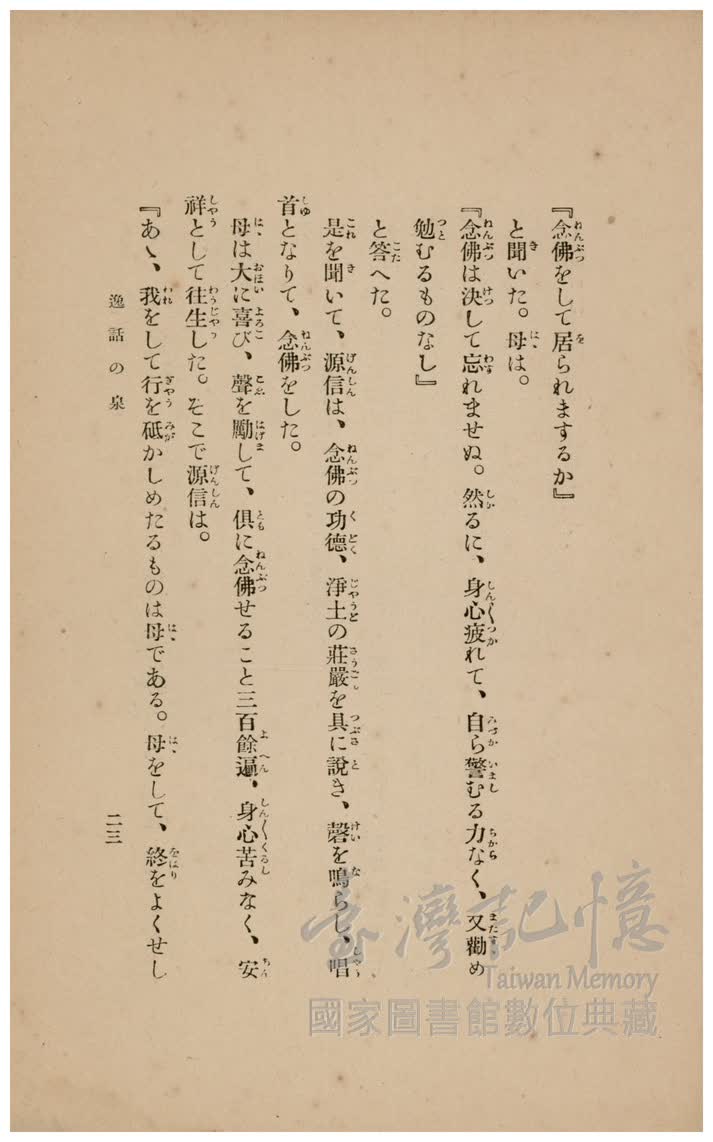 『念佛をして居られまするか』
と聞いた。母は。
『念佛は決して忘れませぬ。然るに、身心疲れて、自ら警むる力なく、又勸め
勉むるものなし』
と答へた。
是を聞いて、源信は、念佛の功德、淨土の莊嚴を具に說き、磬を鳴らし、唱
首となりて、念佛をした。
母は大に喜び、聲を勵して、俱に念佛せること三百餘遍、身心苦みなく、安
祥として往生した。そこで源信は。
『あゝ、我をして行を砥かしめたるものは母である。母をして、終をよくせし
逸話の泉
二三
臺灣記憶
Taiwan Memory
國家圖書館數位典藏